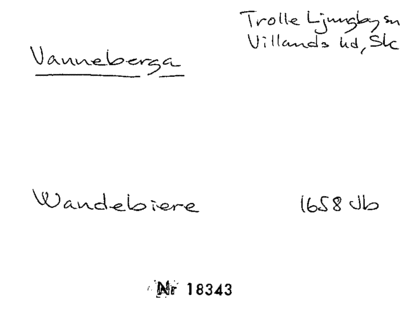 Trolle Ljungby sn
Villands hd, Sk
Vanneberga
Wandebiere 1658 Jb
Nr 18343